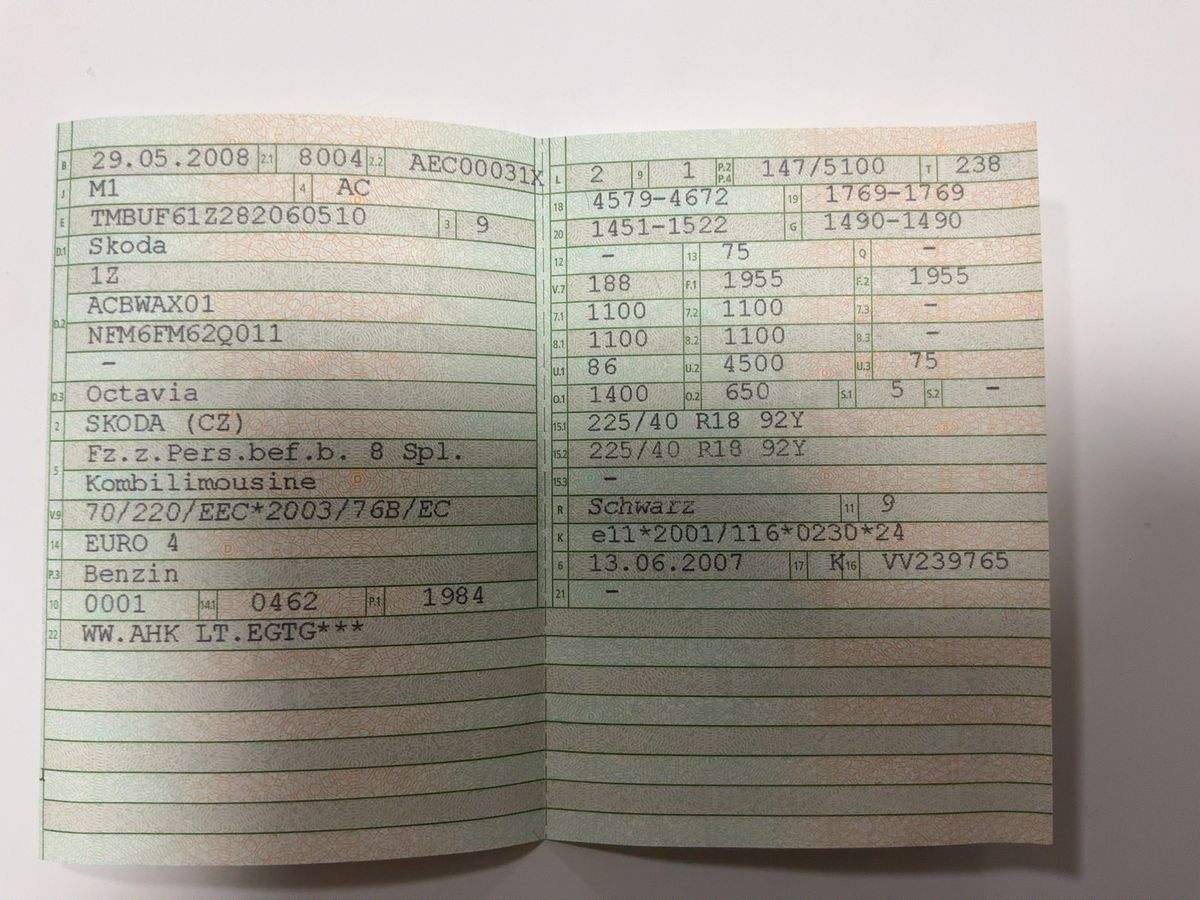 B 29.05.2008 2.1 8004 2.2 AEC00031X
J M1 4 AC
E TMBUF61Z282060510 3 9
D.1 Skoda
1Z
D.2 ACBWAX01
NFM6FM62Q011
–
D.3 Octavia
2 SKODA (CZ)
5 Fz.z.Pers.bef.b. 8 Spl.
Kombilimousine
V.9 70/220/EEC*2003/76B/EC
14 EURO 4
P.3 Benzin
10 0001 14.1 0462 P.1 1984
22 WW.AHK LT.EGTG***
L 2 9 1 P.2 P.4 147/5100 T 238
18 4579-4672 19 1769-1769
20 1451-1522 G 1490-1490
12 – 13 75 Q –
V.7 188 F.1 1955 F.2 1955
7.1 1100 7.2 1100 7.3 –
8.1 1100 8.2 1100 8.3 –
U.1 86 U.2 4500 U.3 75
O.1 1400 O.2 650 S.1 5 S.2 –
15.1 225/40 R18 92Y
15.2 225/40 R18 92Y
15.3 –
R Schwarz 11 9
K e11*2001/116*0230*24
6 13.06.2007 17 K 16 VV239765
21 –